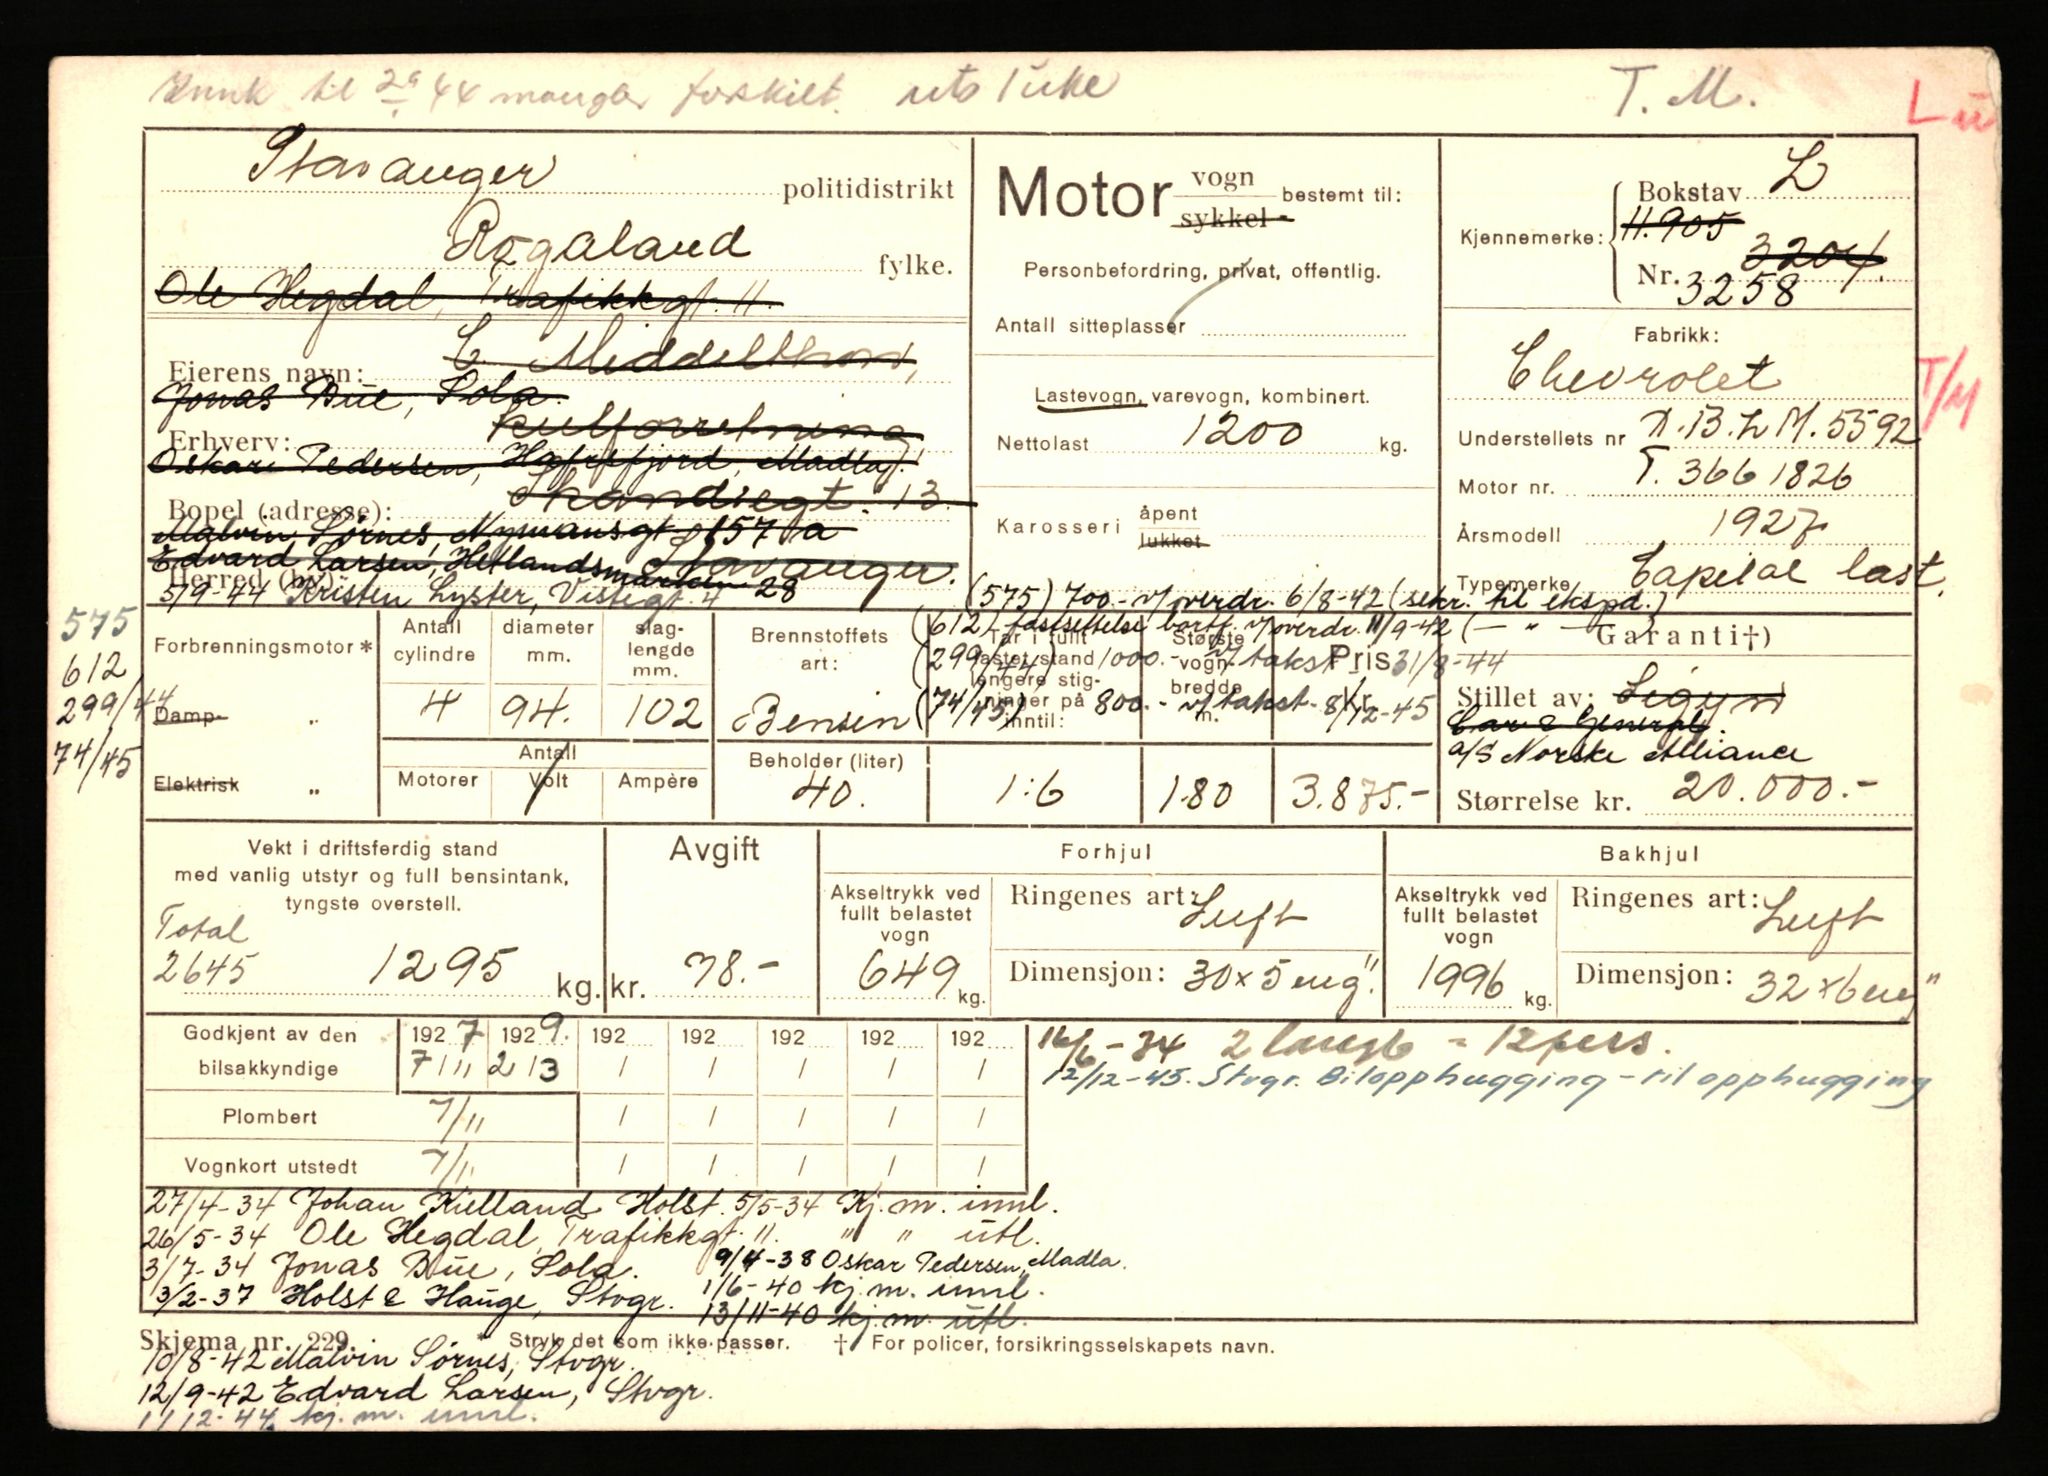 til 2/9 44 mangler forskilt.
T. M.
L
Stavanger politidistrikt
Rogaland fylke.
Ole Hegdal, Trafikkgt. 11.
Eierens navn: C. Middelthon,
Jonas Bue, Sola.
Erhverv: kulforretning
Oskar Pedersen, Hafrsfjord, Madla.
Bopel (adresse): 13
Malvin Sørnes, Nymansgt 157 a
Edvard Larsen, Hetlandsmarken 28
Herred (by): Stavanger.
5/9-44 Kristen Lyster, Vistegt. 4
Motor vogn sykkel bestemt til:
Personbefordring, privat, offentlig.
Antall sitteplasser
Lastevogn, varevogn, kombinert.
Nettolast 1200 kg.
Karosseri åpent lukket
Kjennemerke: Bokstav L
11.905
3204.
Nr. 3258
Fabrikk:
Chevrolet
T/M
Understellets nr X.B.L M.5592
Motor nr. T. 3661826
Årsmodell 1927
Typemerke Capital last.
(575) 700.- v/overdr. 6/8-42 (sekr. til ekspd.)
(612) fastsettelse bortf. v/overdr. 11/9-42 ( — " — )
(299/44) 1000.- v/takst 31/8-44
(74/45) 800.- v/takst 8/12-45
575
612
299/44
74/45
Forbrenningsmotor *
Damp- "
Elektrisk "
Antall cylindre 4
diameter mm. 94.
slag-lengde mm. 102
Antall
Motorer Volt Ampère
Brennstoffets art: Bensin
Beholder (liter) 40.
Tar i fullt lastet stand lengere stig-ninger på inntil: 1:6
Største vogn bredde m. 1.80
Pris Kr. 3.875.-
Garanti†)
Stillet av: Sigyn
Car & General.
a/S Norske Alliance
Størrelse kr. 20.000.-
Vekt i driftsferdig stand
med vanlig utstyr og full bensintank,
tyngste overstell.
Total
2645 1295 kg.
Avgift
kr. 78.-
Forhjul
Akseltrykk ved fullt belastet vogn 649 kg.
Ringenes art: Luft
Dimensjon: 30 x 5 eng."
Bakhjul
Akseltrykk ved fullt belastet vogn 1996 kg.
Ringenes art: Luft
Dimensjon: 32 x 6 eng"
Godkjent av den bilsakkyndige
192 7 192 9. 192 192 192 192 192
7/11 2/3 / / / / /
Plombert 7/11 / / / / /
Vognkort utstedt 7/11 / / / / /
16/6-34 2 = 12 pers.
12/12-45. Stvgr. Bilopphugging - til opphugging
27/4-34 Johan Kielland Holst. 5/5-34 Kj. m. innl.
26/5-34 Ole Hegdal, Trafikkgt. 11. " " utl.
3/7-34 Jonas Bue, Sola. 9/4-38 Oskar Pedersen, Madla.
3/2-37 Holst & Hauge, Stvgr. 1/6-40 kj. m. innl.
13/11-40 kj. m. utl.
Skjema nr. 229. * Stryk det som ikke passer. † For policer, forsikringsselskapets navn.
10/8-42 Malvin Sørnes, Stvgr.
12/9-42 Edvard Larsen, Stvgr.
1/12-44. kj. m. innl.